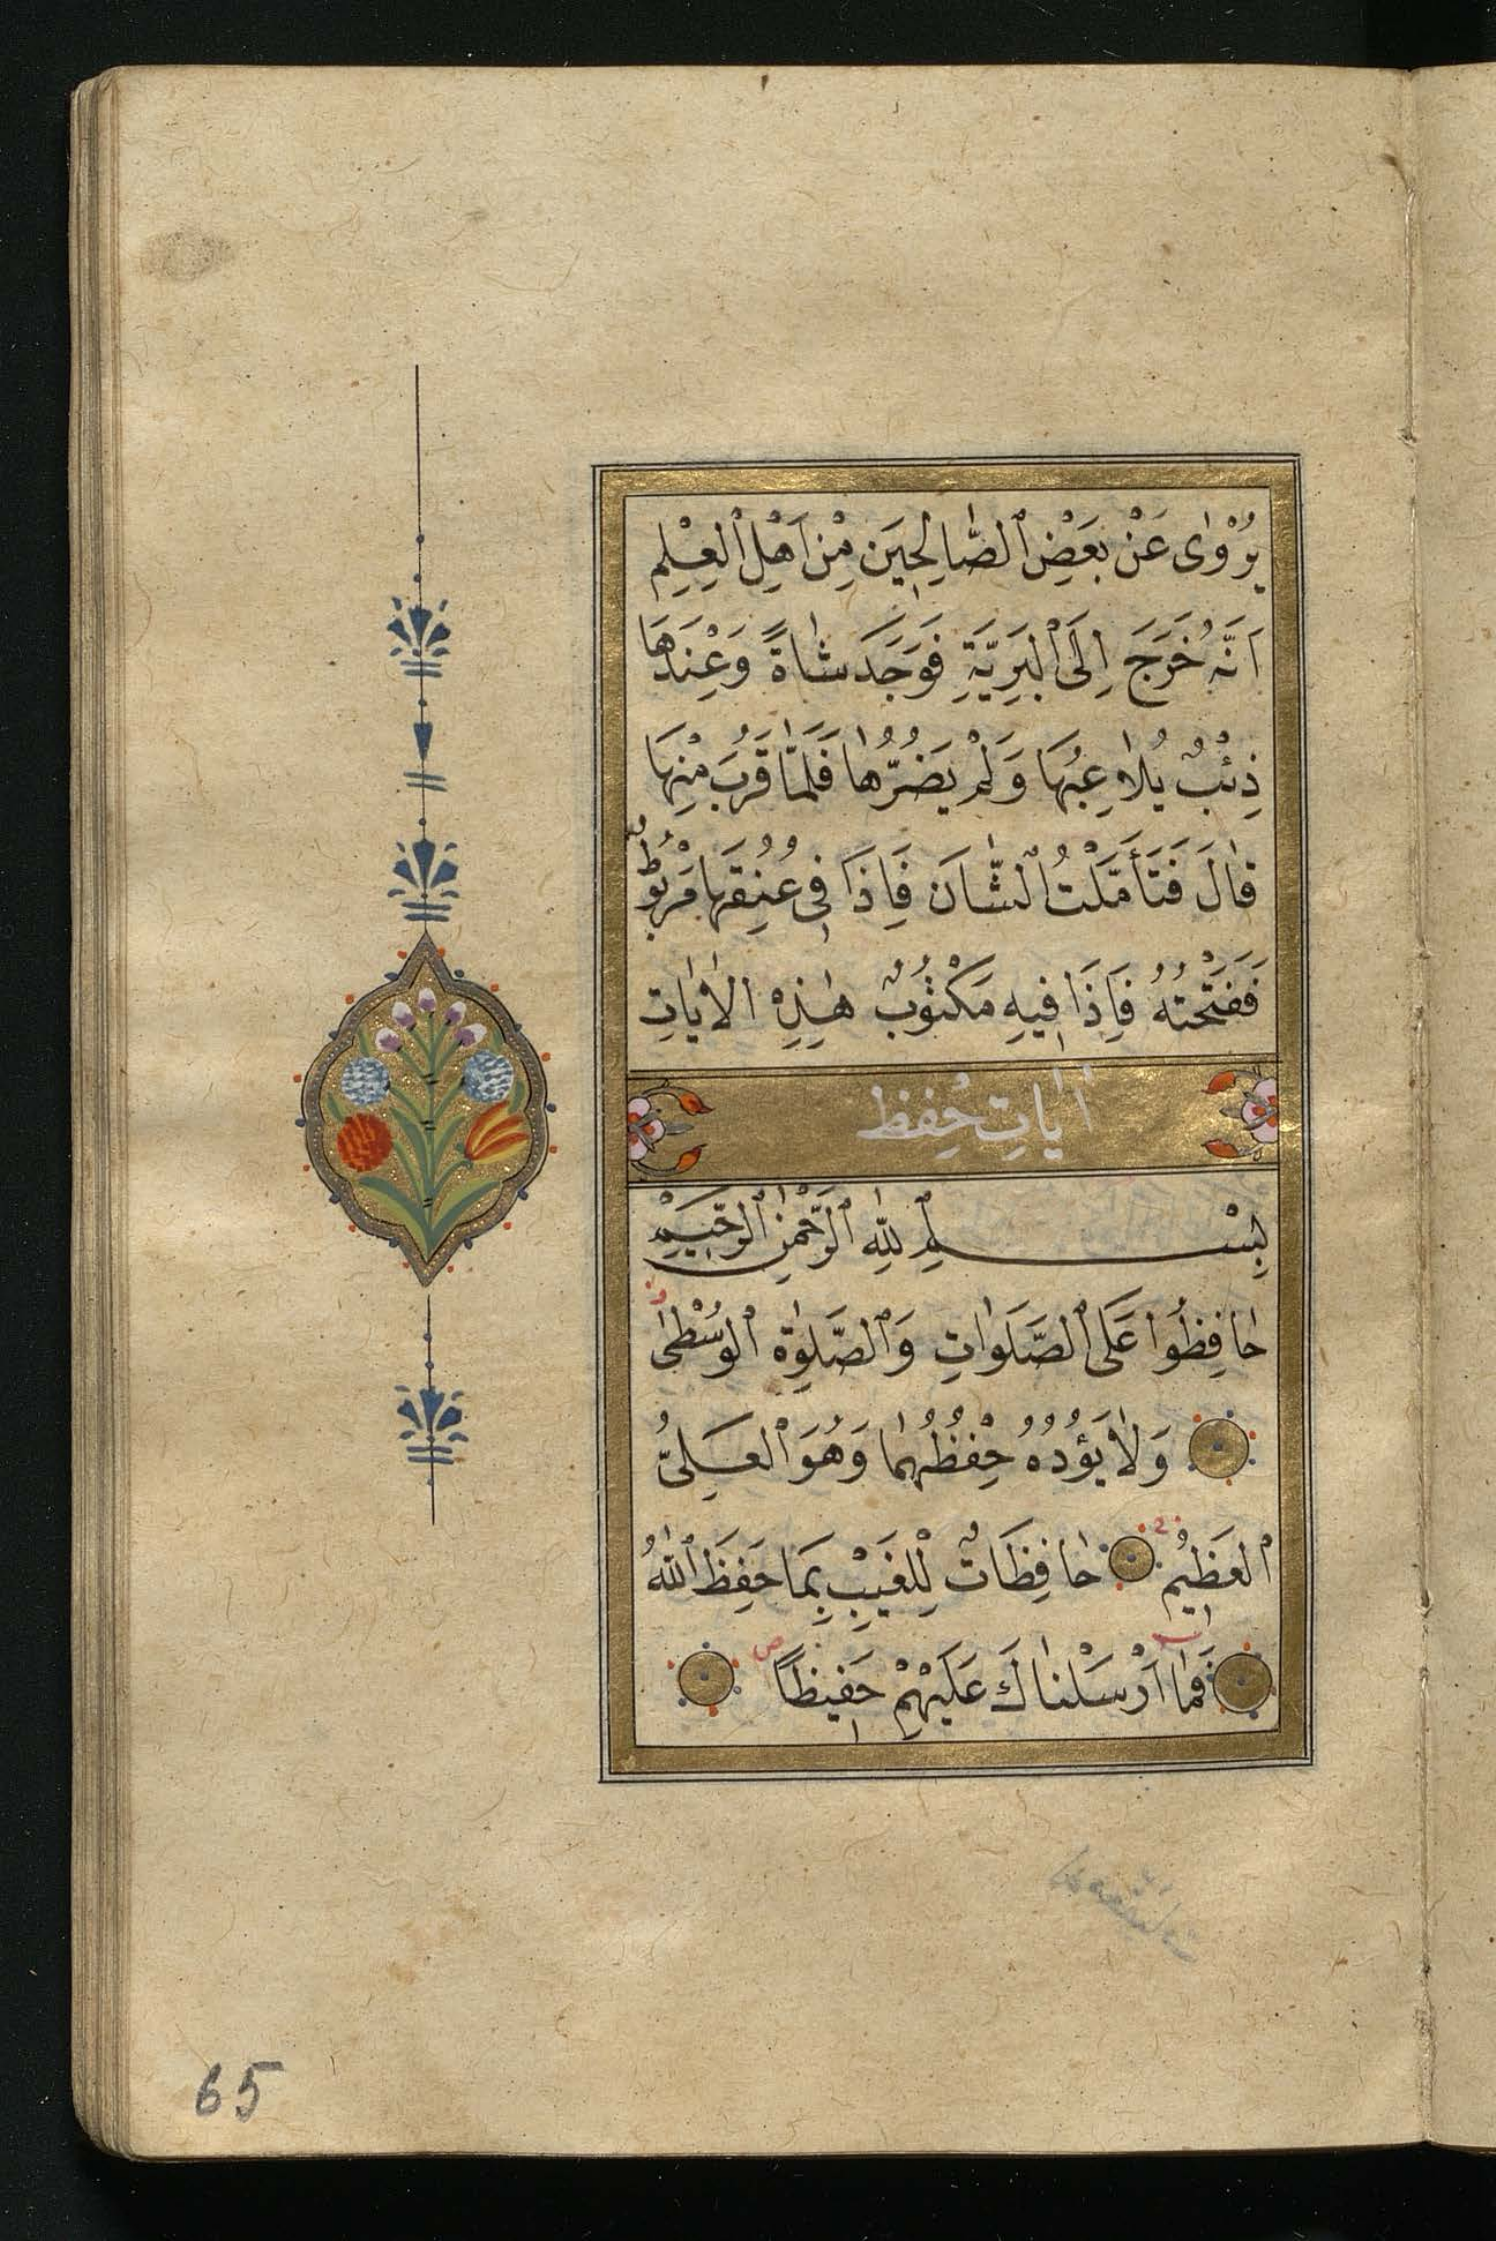 يُرْوٰى عَنْ بَعْضِ ٱلصَّالِحِينَ مِنْ اَهْلِ ٱلْعِلْمِ
اَنَّهُ خَرَجَ اِلَى ٱلْبَرِيَّةِ فَوَجَدَ شَاةً وَعِنْدَهَا
ذِئْبٌ يُلَاعِبُهَا وَلَمْ يَضُرُّهَا فَلَمَّا قَرُبَ مِنْهَا
قَالَ فَتَأَمَّلْتُ ٱلشَّانَ فَاِذَا فِى عُنُقِهَا مَرْبُوطٌ
فَفَتَحْتُهُ فَاِذَا فِيهِ مَكْتُوبٌ هٰذِهِ الْاٰيَاتِ
اٰيَاتِ حِفِظ
بِسْمِ ٱللّٰهِ ٱلرَّحْمٰنِ ٱلرَّحِيمِ
حَافِظُوا عَلَى ٱلصَّلَوَاتِ وَٱلصَّلٰوةِ ٱلْوُسْطٰى
وَلَا يَؤُدُهُ حِفْظُهُمَا وَهُوَ ٱلْعَلِىُّ
ٱلْعَظِيمُ حَافِظَاتٌ لِلْغَيْبِ بِمَا حَفِظَ ٱللّٰهُ
فَمَا اَرْسَلْنَاكَ عَلَيْهِمْ حَفِيظًا
65